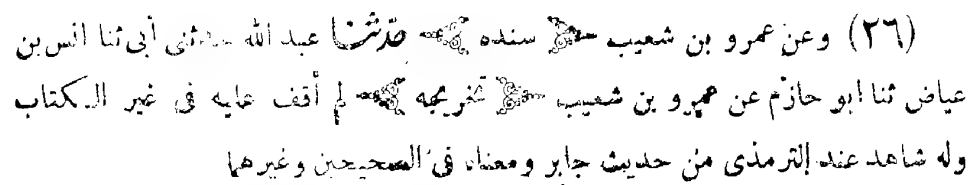 (٢٦) وعن عمرو بن شعيب سنده حدثنا عبد الله حدثنى أبى ثنا انس بن
عياض ثنا ابو حازم عن عمرو بن شعيب تخريجه لم أقف عليه فى غير الكتاب
وله شاهد عند الترمذى من حديث جابر ومعناه فى الصحيحين وغيرهما